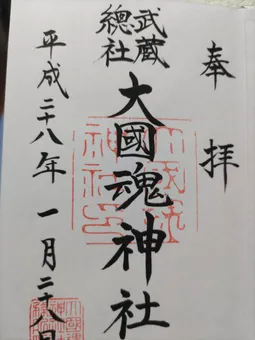 奉拝
武蔵
總社
大國魂神社
平成二十八年一月二十八日